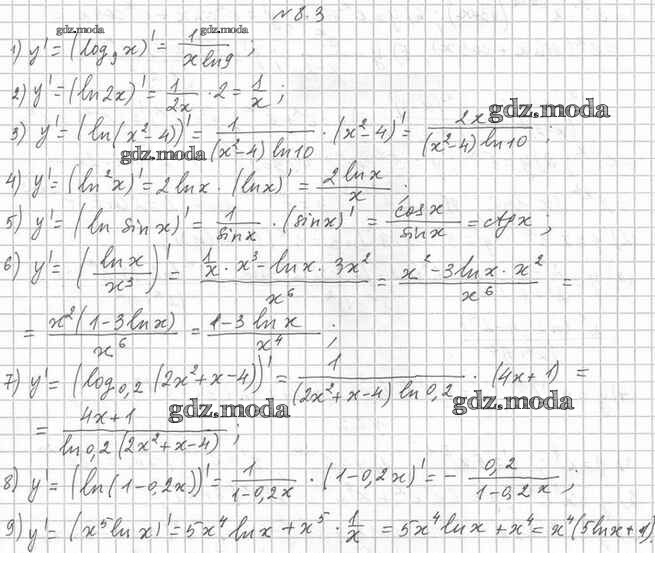 № 8.3
gdz.moda gdz.moda
1) y' = (log₉x)' = 1/(x ln9) ;
2) y' = (ln2x)' = 1/2x · 2 = 1/x ;
gdz.moda
3) y' = (ln(x²-4))' = 1/((x²-4) ln10) · (x²-4)' = 2x/((x²-4) ln10) ;
gdz.moda
4) y' = (ln²x)' = 2lnx · (lnx)' = 2lnx/x ;
5) y' = (ln sinx)' = 1/sinx · (sinx)' = cosx/sinx = ctgx ;
6) y' = (lnx/x³)' = (1/x · x³ - lnx · 3x²)/x⁶ = (x² - 3lnx · x²)/x⁶ =
= x²(1-3lnx)/x⁶ = (1-3lnx)/x⁴ ;
7) y' = (log₀,₂(2x²+x-4))' = 1/((2x²+x-4) ln0,2) · (4x+1) =
gdz.moda gdz.moda
= (4x+1)/(ln0,2(2x²+x-4)) ;
8) y' = (ln(1-0,2x))' = 1/(1-0,2x) · (1-0,2x)' = - 0,2/(1-0,2x) ;
9) y' = (x⁵lnx)' = 5x⁴lnx + x⁵ · 1/x = 5x⁴lnx + x⁴ = x⁴(5lnx+1)